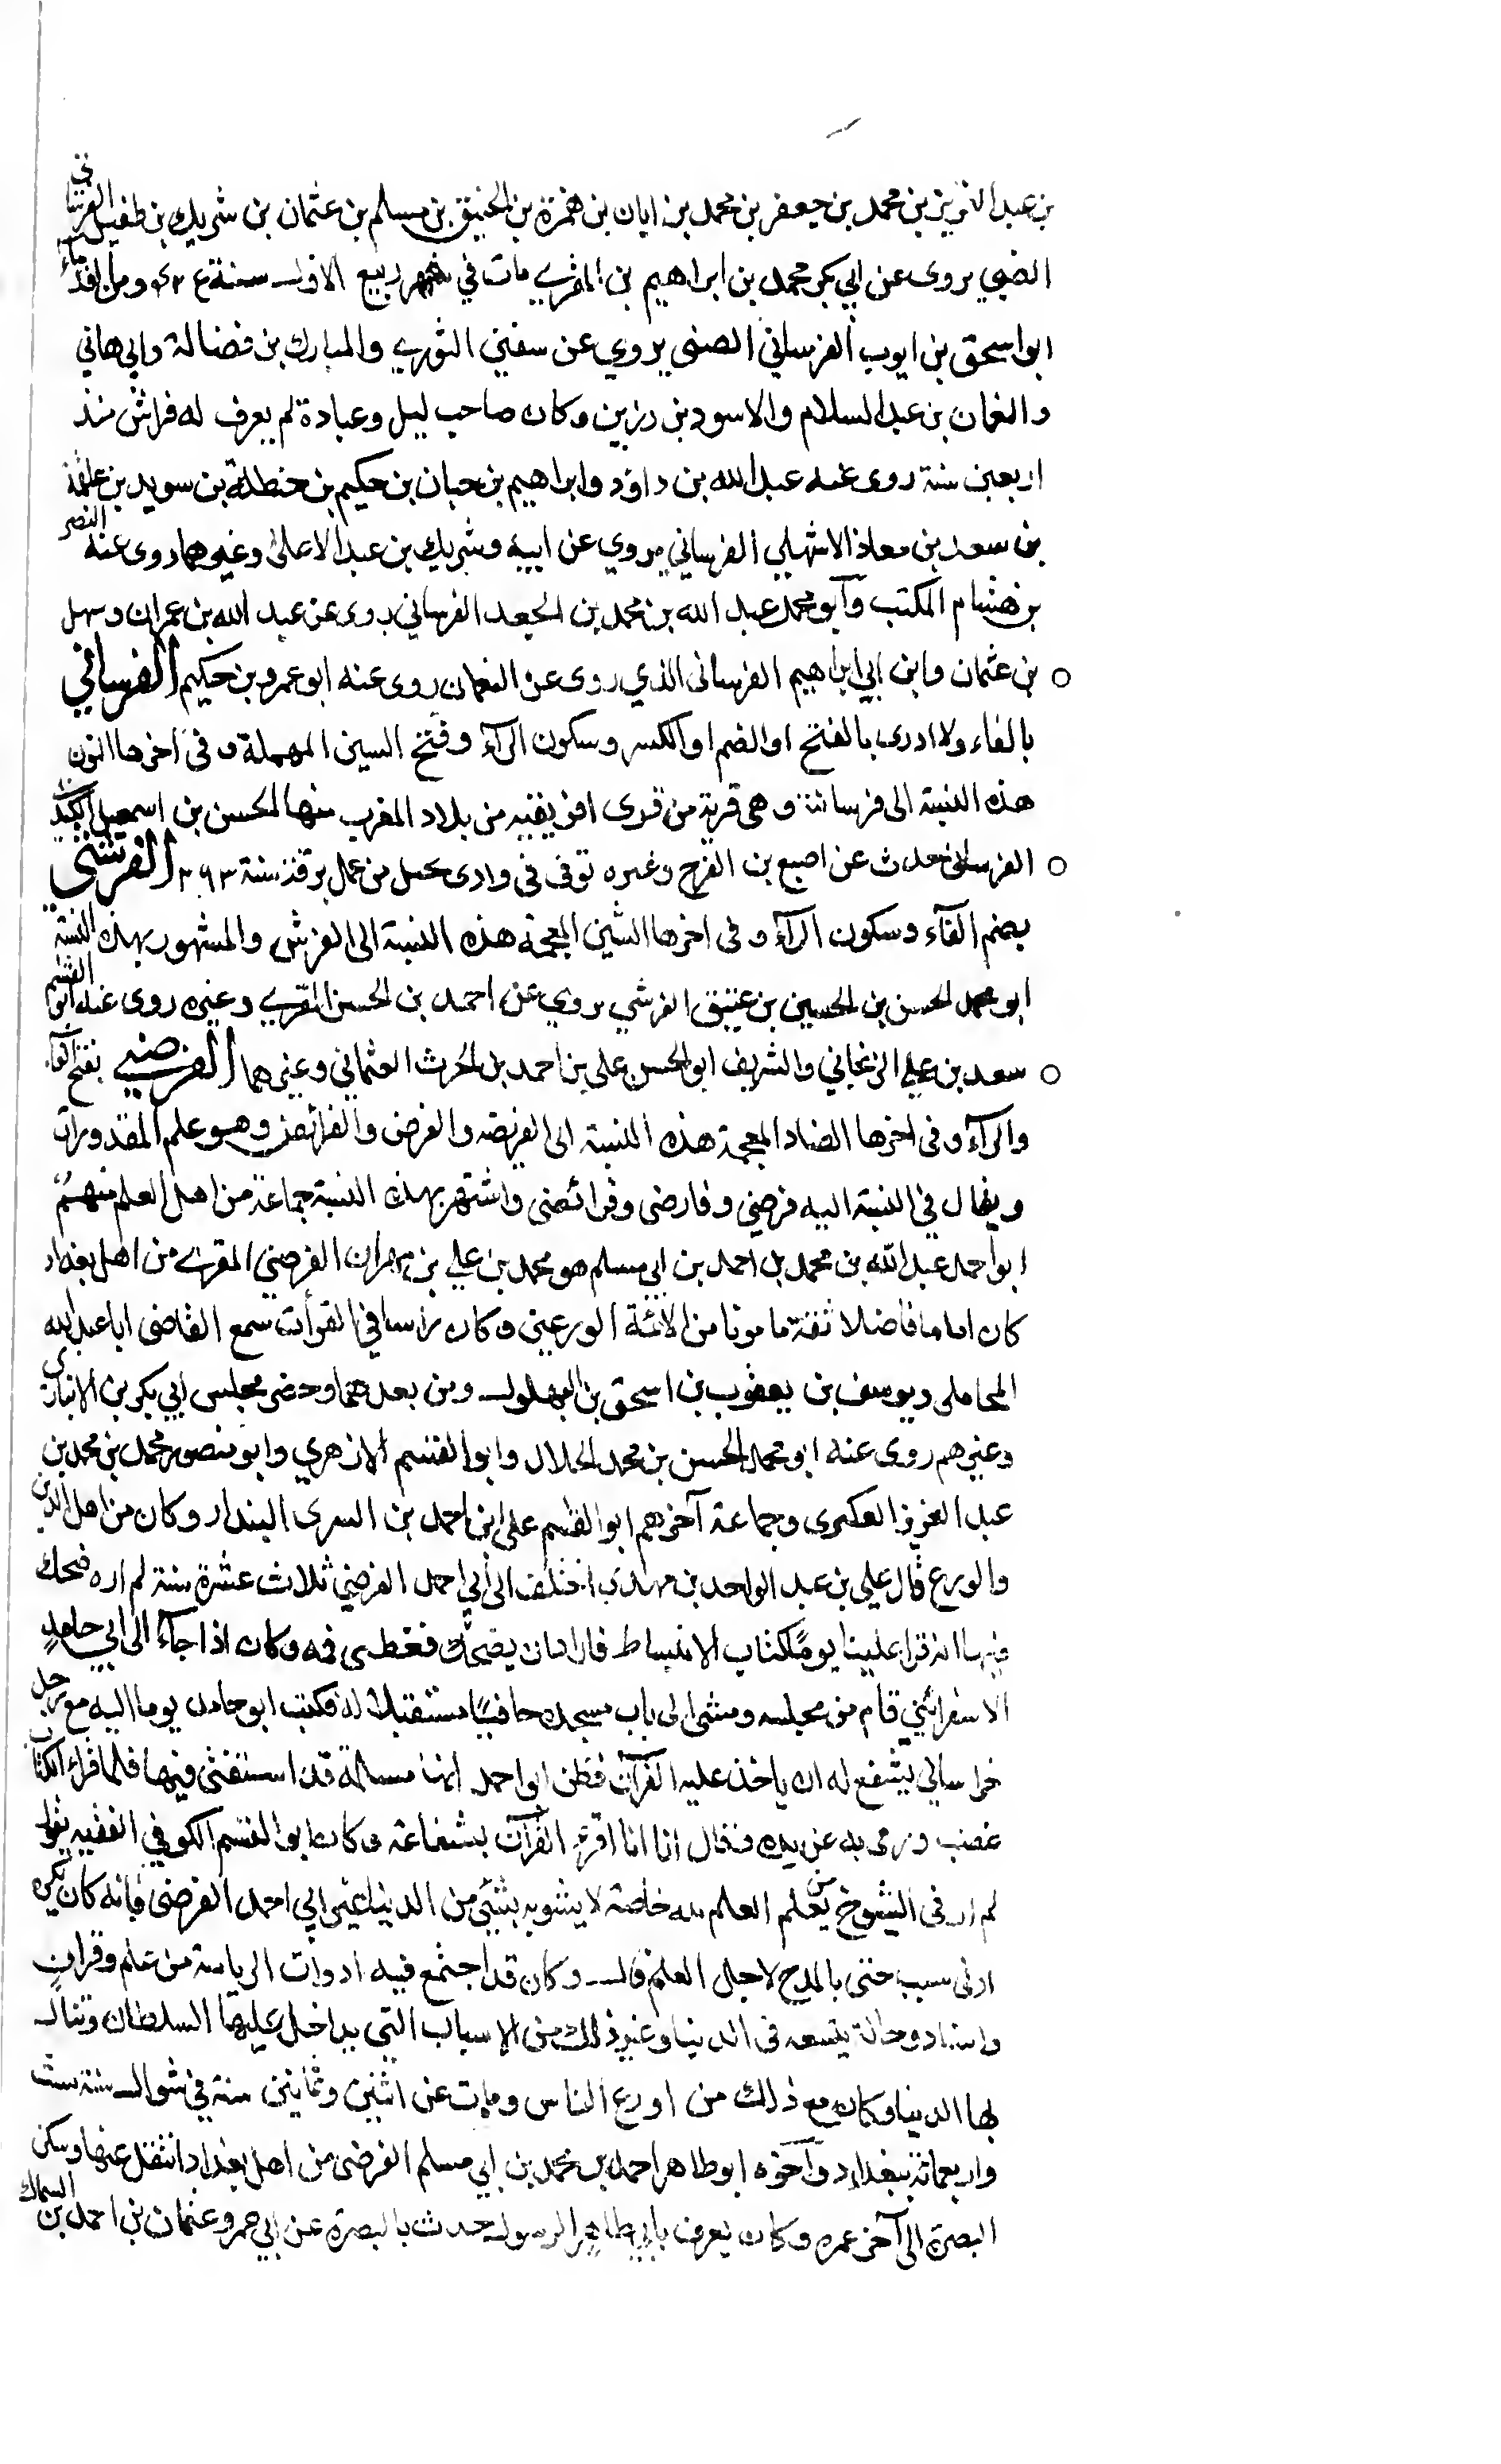 بن عبد العزيز بن محمد بن جعفر بن محمد بن ابان بن همزة بن الحنيق بن مسلم بن عثمان بن شريك بن طفيل الفرساني
الضبي يروى عن ابي بكر محمد بن ابراهيم بن المقري مات في شهر ربيع الاول سنة ومن القدماء
ابو اسحق بن ايوب الفرساني الضبي يروي عن سفين الثوري والمبارك بن فضالة وابي هاني
والنعمان بن عبد السلام والاسود بن رزين وكان صاحب ليل وعبادة لم يعرف له فراش منذ
اربعين سنة روى عنه عبد الله بن داود وابراهيم بن حبان بن حكيم بن حنظلة بن سويد بن علقمة
بن سعد بن معاذ الاشهلي الفرساني يروي عن ابيه وشريك بن عبد الاعلى وغيرهما روى عنه النصر
بن هشام المكتب وآبو محمد عبد الله بن محمد بن الجعد الفرساني روى عن عبد الله بن عمران وسهل
بن عثمان وابن ابي ابراهيم الفرسانى الذي روى عن النعمان روى عنه ابو عمرو بن حكيم الفرساني
بالفاء ولا ادرى بالفتح او الضم او الكسر وسكون الرآء وفتح السين المهملة وفى اخرها النون
هذه النسبة الى فرسانة وهى قرية من قرى افريقيه من بلاد المغرب منها الحسن بن اسمعيل الكندى
الفرسانى حدث عن اصبع بن الفرج وغيره توفى فى وادى من عمل برقة سنة ٢٦٣ الفرشي
بضم الفآء وسكون الرآء وفى اخرها الشين المعجمة هذه النسبة الى الفرش والمشهور بهذه النسبة
ابو محمد الحسن بن الحسين بن عتيق الفرشي يروي عن احمد بن الحسن المقري وغيره روى عنه ابو القسم
سعد بن علي الزنجاني والشريف ابو الحسن علي بن احمد بن الحرث العثماني وغيرهما الفرضي بفتح الفآء
والرآء وفى اخرها الضاد المعجمة هذه النسبة الى الفريضه والفرض والفرائض وهو علم المقدورات
ويقال في النسبة اليه فرضي وفارضى وفرائضى واشتهر بهذه النسبة جماعة من اهل العلم منهم
ابو احمد عبد الله بن محمد بن احمد بن ابي مسلم هو محمد بن علي بن مهران الفرضي المقرى من اهل بغداد
كان اماما فاضلا ثقة مامونا من الائمة الورعين وكان راسا في القرأت سمع القاضى ابا عبد الله
المحاملى ويوسف بن يعقوب بن اسحق بن البهلول ومن بعدهما وحضر مجلس ابي بكر بن الانبارى
وغيرهم روى عنه ابو محمد الحسن بن محمد الخلال وابو القسم الازهري وابو منصور محمد بن محمد بن
عبد العزيز العكبرى وجماعة آخرهم ابو القسم على ابن احمد بن السرى البندار وكان من اهل الدين
والورع قال علي بن عبد الواحد بن مهدى اختلف الى ابي احمد الفرضي ثلاث عشرة سنة لم اره ضحك
فيها انه قرا علينا يومًا كتاب الانبساط فاراد ان يضحك فغطى فمه وكان اذا جآء الى ابي حامدٍ
الاسفرائيني قام من مجلسه ومشى الى باب مسجده حافيًا مستقبلا له فكتب ابو حامد يوما اليه مع رجل
خراساني ليشفع له ان ياخذ عليه القرآن فظن ابو احمد انها مسالة قد استفتى فيها فلما قراء الكتاب
غضب ورمى به عن يده وقال انا انا اقرئ القرآن بشفاعة وكان ابو القسم الكوفي الفقيه يقول
لم ار فى الشيوخ من يعلم العلم لله خاصة لا يشوبه بشئ من الدنيا غير ابي احمد الفرضى فانه كان يكره
ادنى سبب حتى بالمدح لاجل العلم قال وكان قد اجتمع فيه ادوات الرياسة من علم وقران
واسناد وحالة يتسعه فى الدنيا وغير ذلك من الاسباب التى يداخل عليها السلطان وتنال
بها الدنيا وكان مع ذلك من اورع الناس ومات عن اثنين وثمانين سنة في شوال سنة ست
واربعمائة ببغداد وآخوه ابو طاهر احمد بن محمد بن ابي مسلم الفرضى من اهل بغداد انتقل عنها وسكن
البصرة الى آخر عمره وكان يعرف بابي طاهر الرسول حدث بالبصرة عن ابي عمرو عثمان بن احمد بن السماك